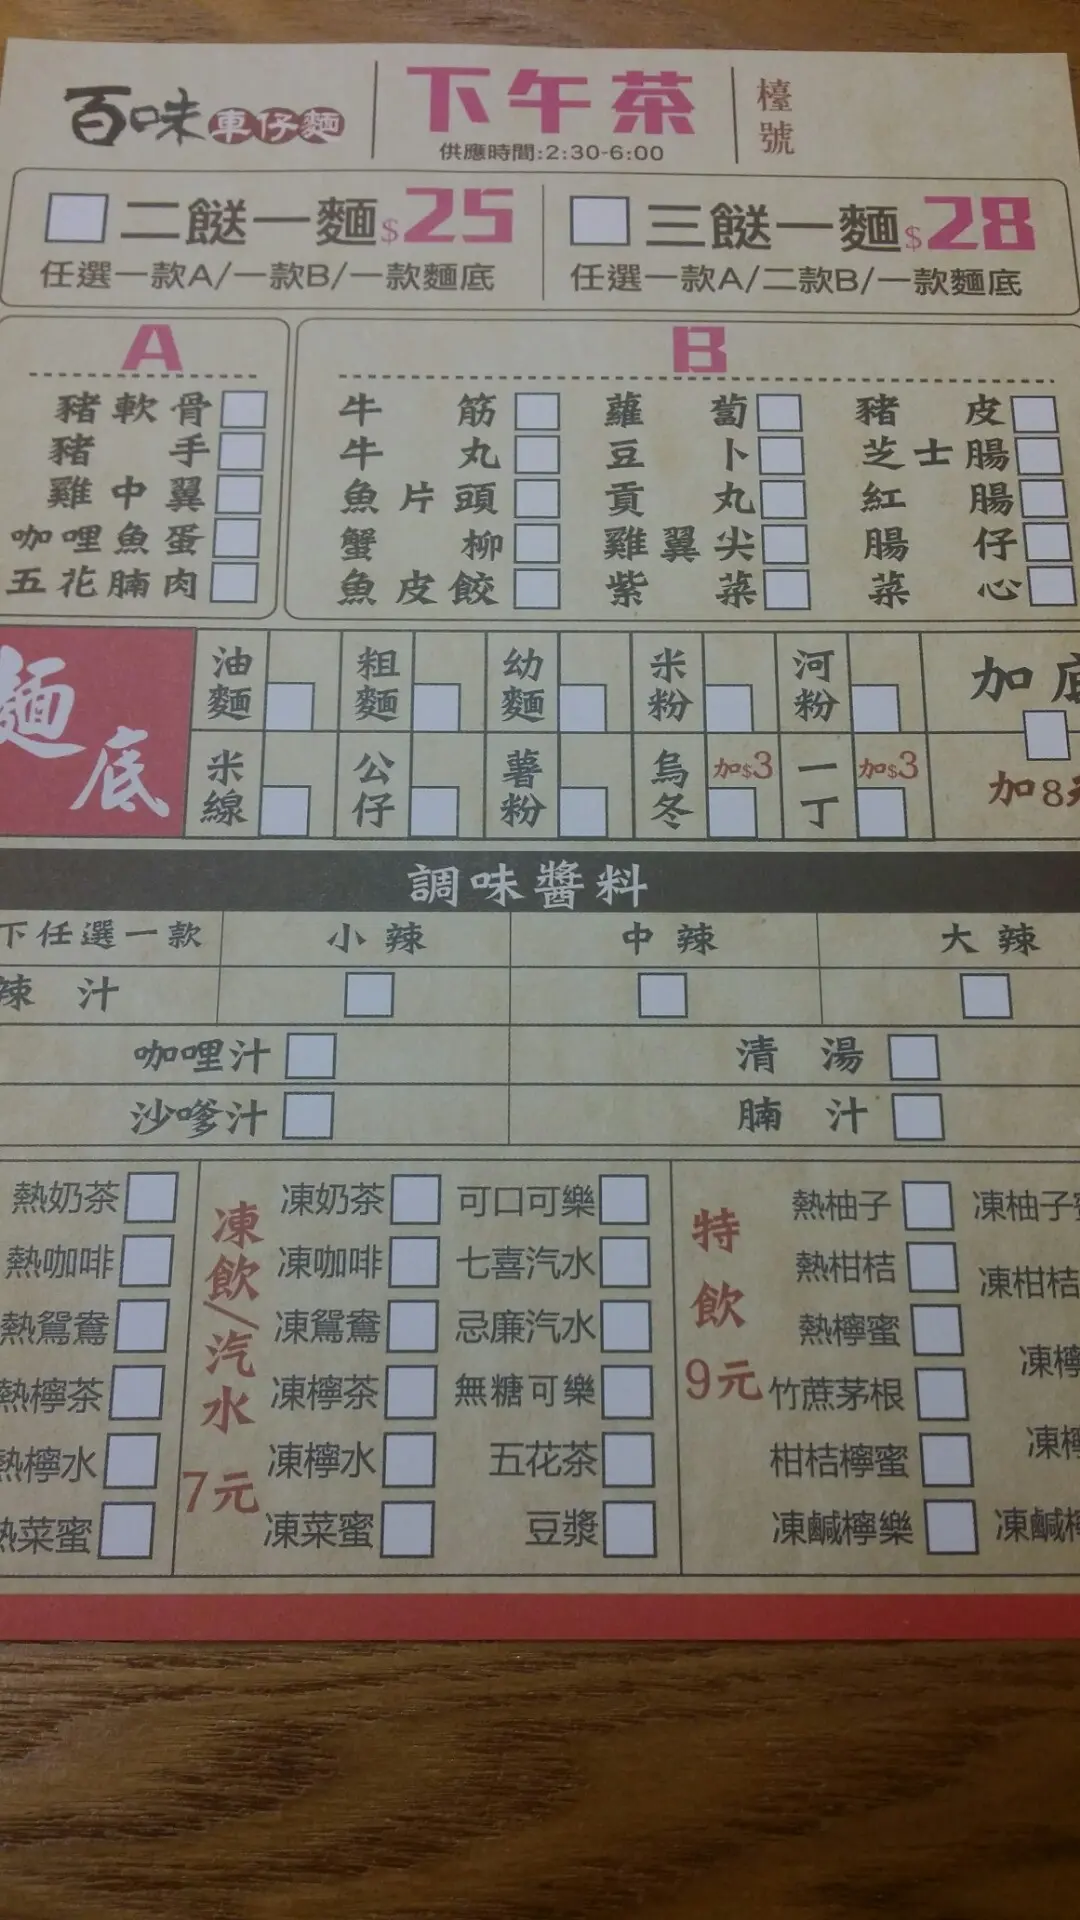 百味車仔麵
下午茶
供應時間:2:30-6:00
檯號
二餸一麵$25
任選一款A/一款B/一款麵底
三餸一麵$28
任選一款A/二款B/一款麵底
A
豬軟骨
豬手
雞中翼
咖哩魚蛋
五花腩肉
B
牛筋 蘿蔔 豬皮
牛丸 豆卜 芝士腸
魚片頭 貢丸 紅腸
蟹柳 雞翼尖 腸仔
魚皮餃 紫菜 菜心
麵底
油麵 粗麵 幼麵 米粉 河粉
米線 公仔 薯粉 烏冬 加$3 一丁 加$3
加底
加8元
調味醬料
下任選一款 小辣 中辣 大辣
辣汁
咖哩汁 清湯
沙嗲汁 腩汁
熱奶茶
熱咖啡
熱鴛鴦
熱檸茶
熱檸水
熱菜蜜
凍飲/汽水
7元
凍奶茶 可口可樂
凍咖啡 七喜汽水
凍鴛鴦 忌廉汽水
凍檸茶 無糖可樂
凍檸水 五花茶
凍菜蜜 豆漿
特飲
9元
熱柚子 凍柚子蜜
熱柑桔 凍柑桔
熱檸蜜 凍檸
竹蔗茅根 凍檸
柑桔檸蜜
凍鹹檸樂 凍鹹檸